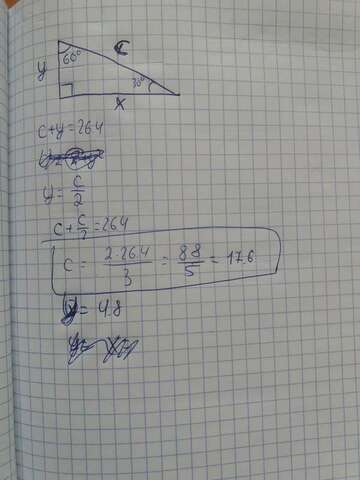 c
y 60°
30°
x
c+y=26.4
y = c/2
c + c/2 = 26.4
c = 2·26.4/3 = 88/5 = 17.6
y = 4.8